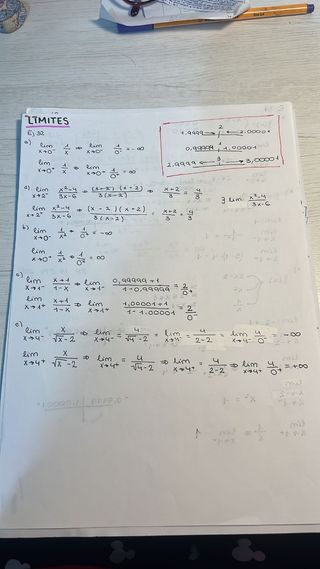 LÍMITES
Ej 32
a) lim x→0⁻ 1/x ⇒ lim x→0⁻ 1/0⁻ = -∞
lim x→0⁺ 1/x ⇒ lim x→0⁺ 1/0⁺ = ∞
2
1.9999 → ← 2.00001
1
0,99999 1,00001
2.9999 ← 3 → 3,00001
d) lim x→2⁻ x²-4/3x-6 = (x-2)(x-2)/3(x-2) ⇒ x+2/3 = 4/3
lim x→2⁺ x²-4/3x-6 ⇒ (x-2)(x-2)/3(x-2) = x+2/3 = 4/3
∃ lim x²-4/3x-6
b) lim x→0⁻ 1/x² = 1/0² = -∞
lim x→0⁺ 1/x² = 1/0² = ∞
c) lim x→1⁻ x+1/1-x ⇒ lim x→1⁻ 0,99999+1/1-0,99999 = 2/0⁺
lim x→1⁺ x+1/1-x ⇒ lim x→1⁺ 1,00001+1/1-1.00001 = 2/0⁻
e) lim x→4⁻ x/√x-2 ⇒ lim x→4⁻ = 4/√4-2 = lim x→4⁻ = 4/2-2 = lim x→4⁻ 4/0⁻ = -∞
lim x→4⁺ x/√x-2 ⇒ lim x→4⁺ = 4/√4-2 ⇒ lim x→4⁺ = 4/2-2 ⇒ lim x→4⁺ 4/0⁺ = +∞